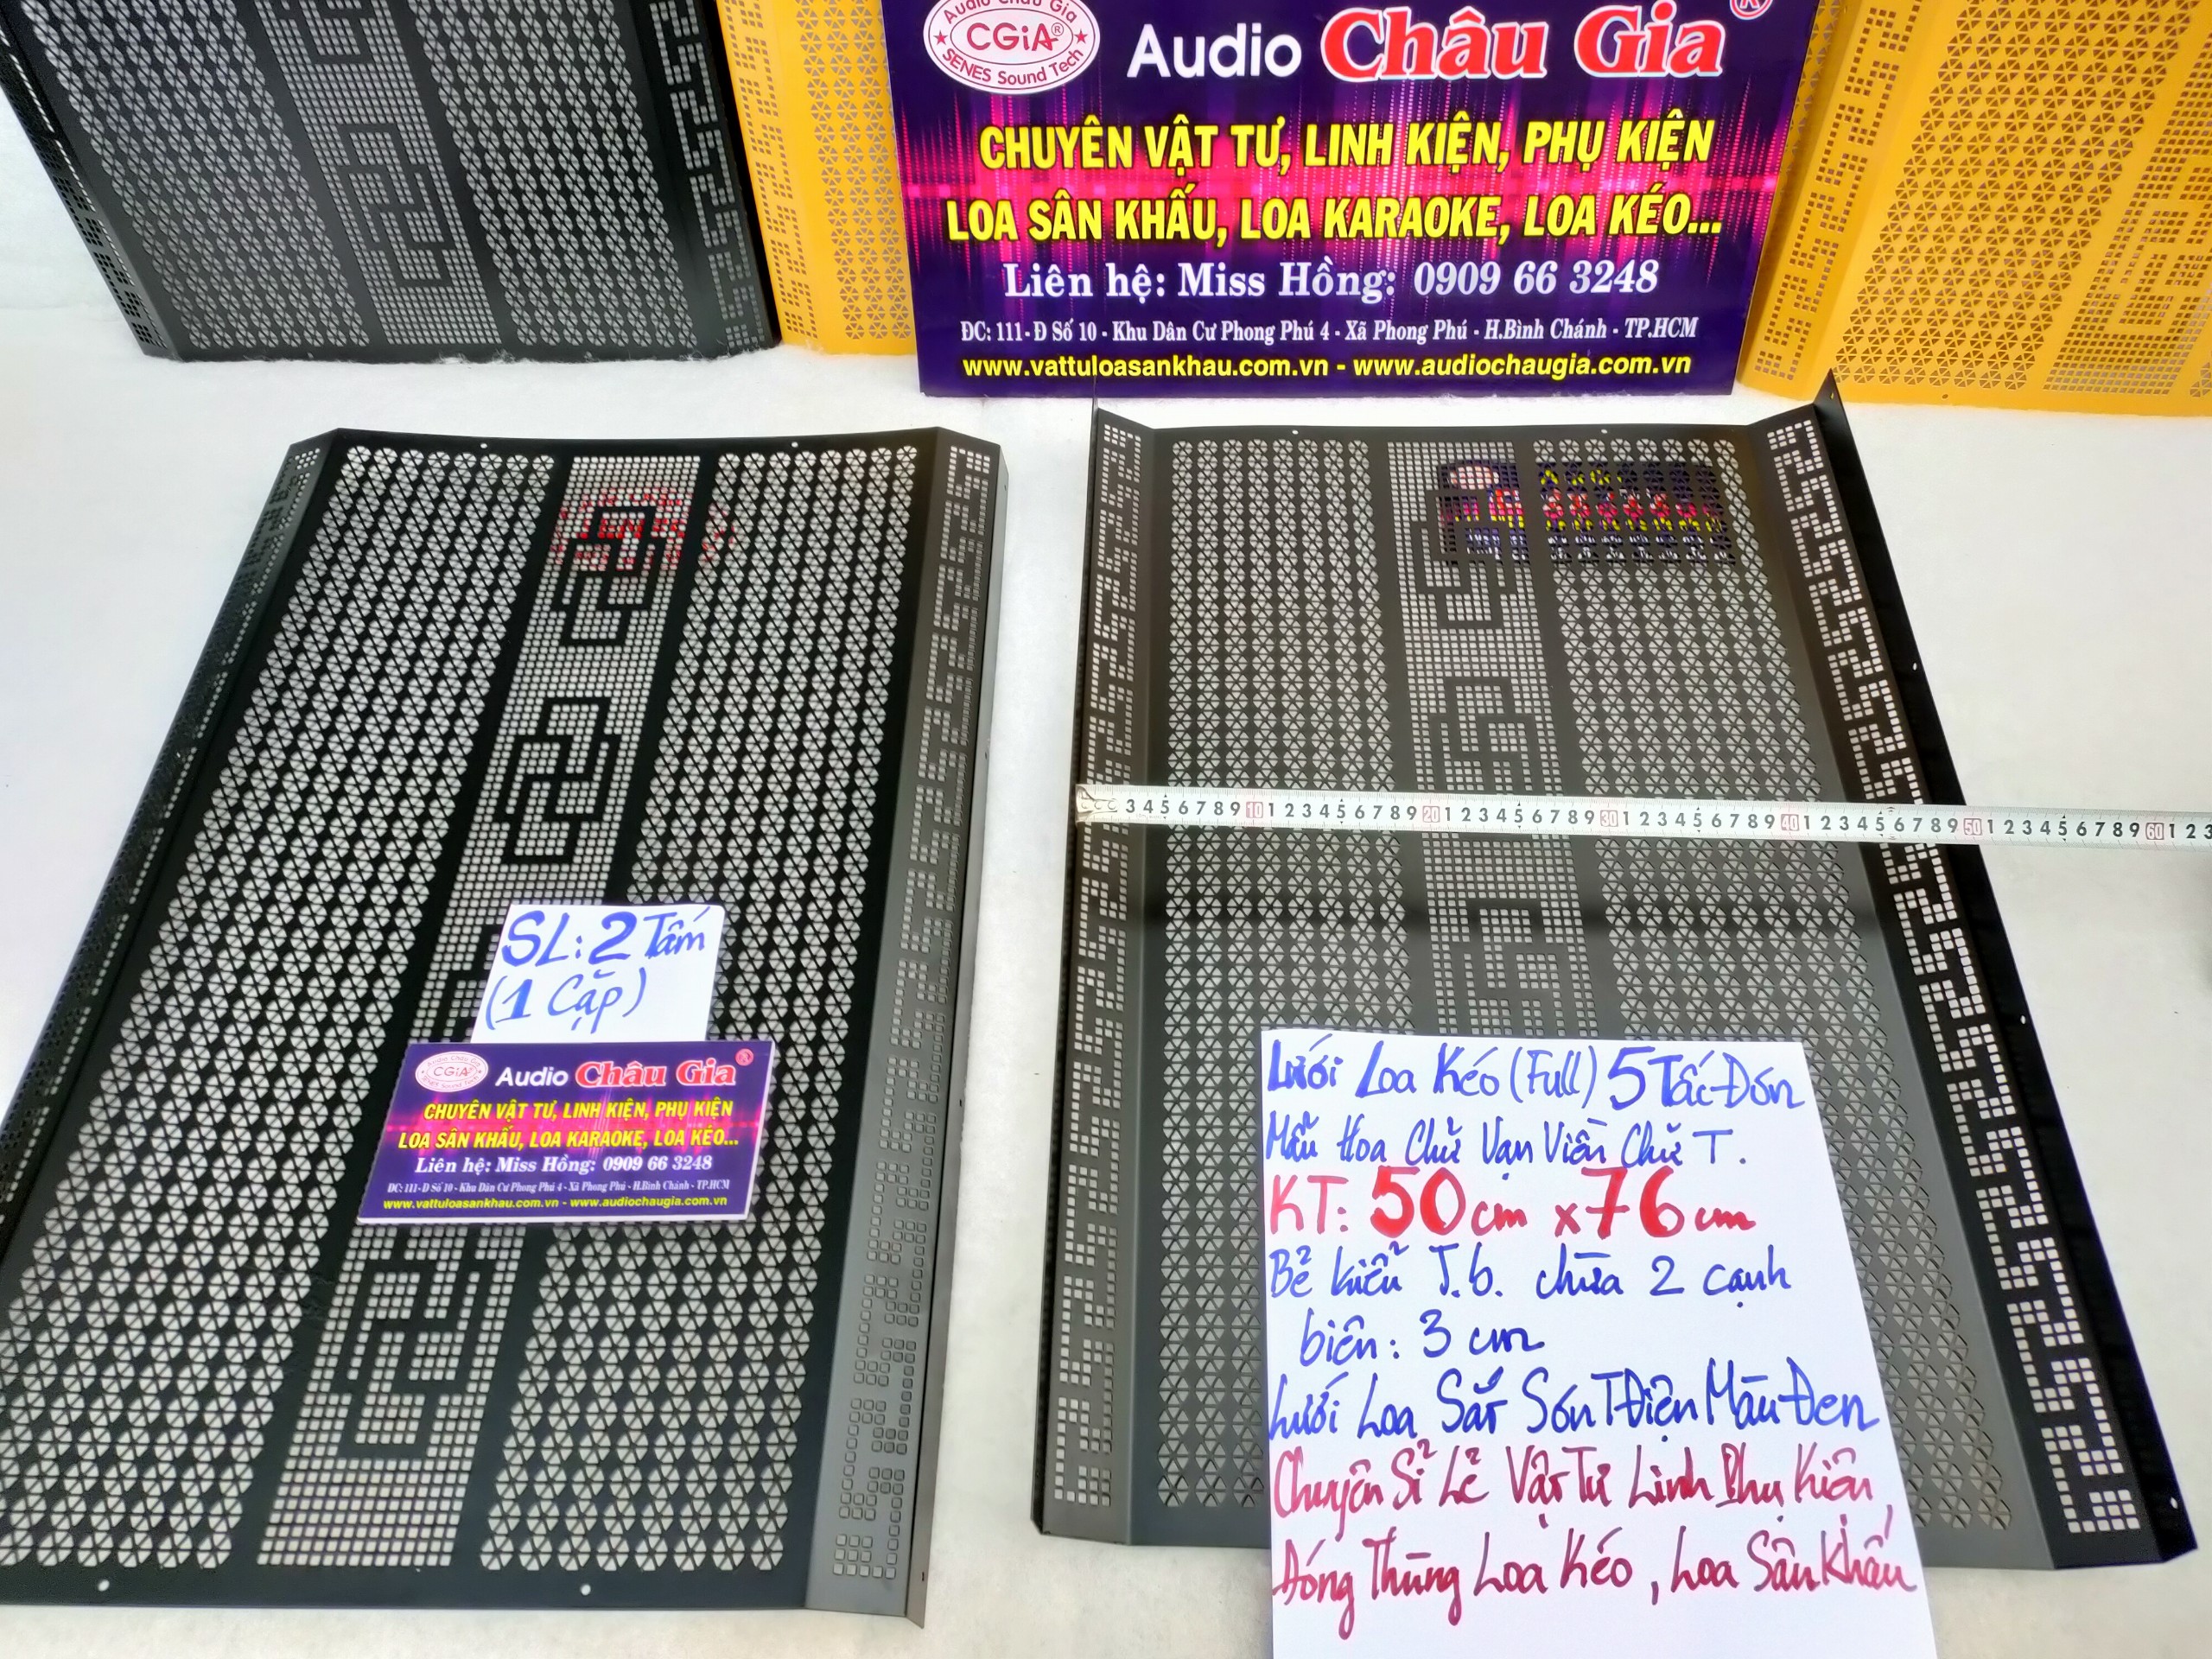 Audio Châu Gia
CGiA®
SENES Sound Tech
Audio Châu Gia ®
CHUYÊN VẬT TƯ, LINH KIỆN, PHỤ KIỆN
LOA SÂN KHẤU, LOA KARAOKE, LOA KÉO...
Liên hệ: Miss Hồng: 0909 66 3248
ĐC: 111- Đ Số 10 - Khu Dân Cư Phong Phú 4 - Xã Phong Phú - H.Bình Chánh - TP.HCM
www.vattuloasankhau.com.vn - www.audiochaugia.com.vn
3 4 5 6 7 8 9 10 1 2 3 4 5 6 7 8 9 20 1 2 3 4 5 6 7 8 9 30 1 2 3 4 5 6 7 8 9 40 1 2 3 4 5 6 7 8 9 50 1 2 3 4 5 6 7 8 9 60 1 2 3
SL: 2 Tấm
(1 Cặp)
Audio Châu Gia
CGiA®
SENES Sound Tech
Audio Châu Gia ®
CHUYÊN VẬT TƯ, LINH KIỆN, PHỤ KIỆN
LOA SÂN KHẤU, LOA KARAOKE, LOA KÉO...
Liên hệ: Miss Hồng: 0909 66 3248
ĐC: 111- Đ Số 10 - Khu Dân Cư Phong Phú 4 - Xã Phong Phú - H.Bình Chánh - TP.HCM
www.vattuloasankhau.com.vn - www.audiochaugia.com.vn
Lưới Loa Kéo (Full) 5 Tấc Đơn
Mẫu Hoa Chữ Vạn Viền Chữ T.
KT: 50cm x 76cm
Bẻ kiểu J.b. chừa 2 cạnh
biên: 3 cm
Lưới Loa Sắt Sơn T Điện Màu Đen
Chuyên Sỉ Lẻ Vật Tư Linh Phụ Kiện,
Đóng Thùng Loa Kéo, Loa Sân Khấu